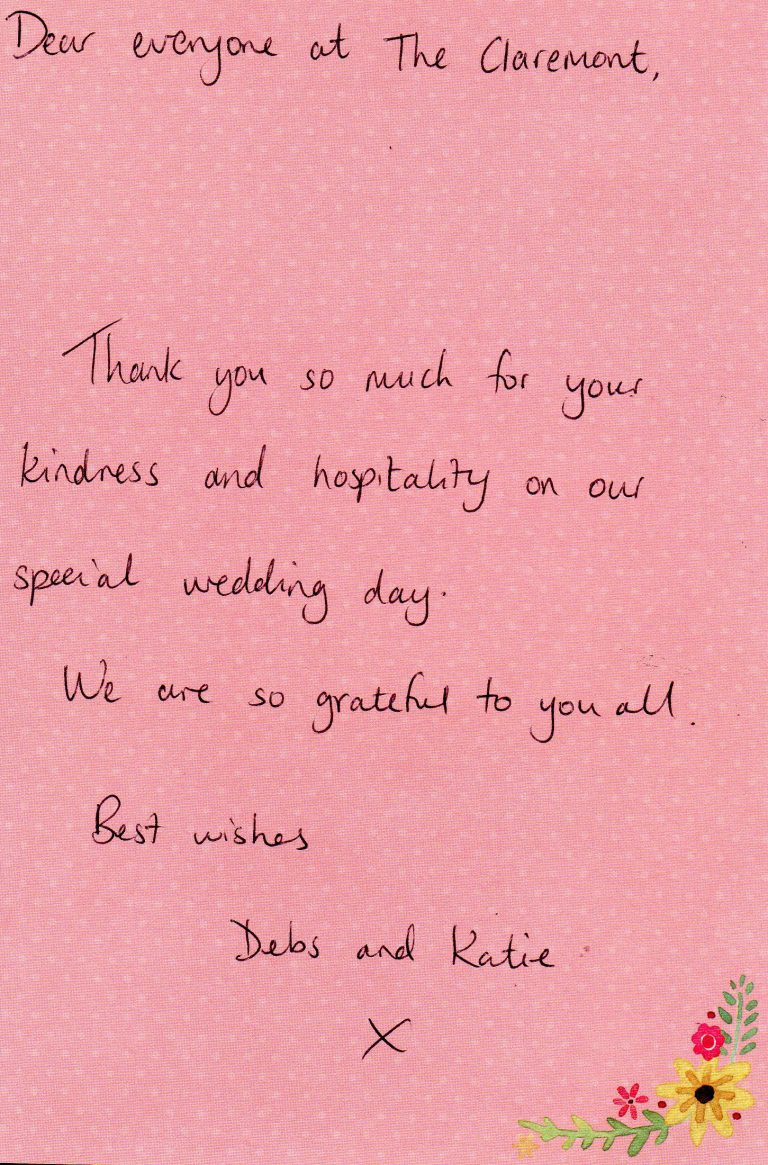 Dear everyone at The Claremont,
Thank you so much for your
kindness and hospitality on our
special wedding day.
We are so grateful to you all.
Best wishes
Debs and Katie
X